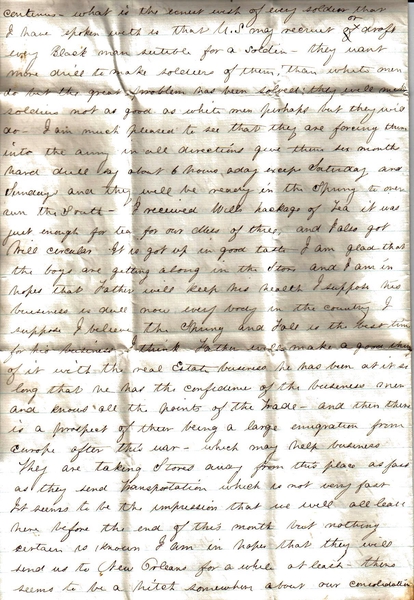 continues - what is the ernest wish of every soldier that
I have spoken with is that U.S may recruit or draft
every Black man suitable for a soldier - they want
more drill to make soldiers of them, than white men
do but the great problem has been solved; they will make
soldiers not as good as white men perhaps but they will
do - I am much pleased to see that they are forcing them
into the army in all directions give them six month
hard drill say about 6 hours aday except Saturday and
Sundays and they will be ready in the Spring to over
run the South - I received Wills package of Tea it was
just enough for tea for our mess of three, and I also got
Will circular. It is got up in good taste I am glad that
the boys are getting along in the Store and I am in
hopes that Father will keep his health I suppose his
business is dull now every body in the country I
suppose I believe the Spring and Fall is the best time
for his business I think Father will make a good thing
of it with the real Estate business he has been at it so
long that he has the confidence of the business men
and knows all the points of the Trade - and then there
is a prospect of their being a large emigration from
Europe after this war - which may help business
They are taking Stores away from this place as fast
as they send Transportation which is not very fast
It seems to be the impression that we will all leave
here before the end of this month but nothing
certain is known I am in hopes that they will
send us to New Orleans for a while at least - there
seems to be a hitch somewhere about our consolidation